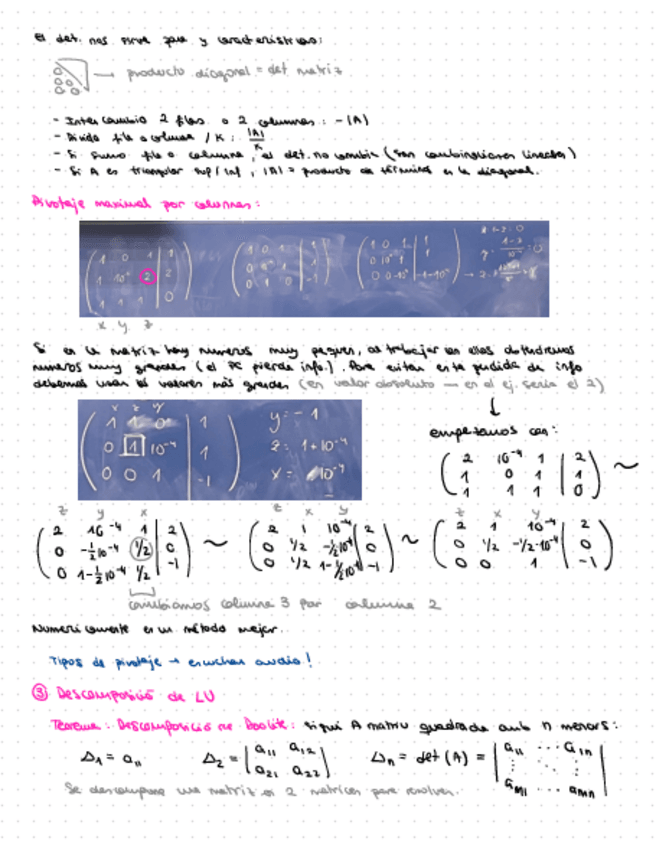 El det. nos sirve para y características:
→ producto diagonal = det matriz
- Intercambio 2 filas o 2 columnas: -|A|
- Divido fila o columna / K: |A|/K
- Si sumo fila o columna, el det. no cambia (son combinaciones lineales)
- Si A es triangular sup/inf, |A| = producto de términos en la diagonal.
Pivotaje maximal por columnas:
1 0 1 | 1
1 10⁻⁴ 2 | 2
1 1 1 | 0
x y z
Si en la matriz hay números muy pequeños, al trabajar con ellos obtendremos
números muy grandes (el PC pierde info.). Para evitar esta perdida de info
debemos usar los valores más grandes (en valor absoluto — en el ej. sería el 2)
x z y
1 1 0 | 1
0 1 10⁻⁴ | 1
0 0 1 | -1
y = -1
z = 1+10⁻⁴
x = 10⁻⁴
empezamos con:
2 10⁻⁴ 1 | 2
1 0 1 | 1
1 1 1 | 0
~
z y x
2 10⁻⁴ 1 | 2
0 -½10⁻⁴ 1/2 | 0
0 1-½10⁻⁴ 1/2 | -1
~
z x y
2 1 10⁻⁴ | 2
0 1/2 -½10⁻⁴ | 0
0 1/2 1-½10⁻⁴ | -1
~
z x y
2 1 10⁻⁴ | 2
0 1/2 -1/2·10⁻⁴ | 0
0 0 1 | -1
cambiamos columna 3 por columna 2
Numéricamente es un método mejor.
Tipos de pivotaje → escuchar audio!
③ Descomposició de LU
Teorema: Descomposició de Doolite: sigui A matriu quadrada amb n menors:
Δ₁ = a₁₁ Δ₂ = |a₁₁ a₁₂ Δₙ = det(A) = |a₁₁ ... a₁ₙ
a₂₁ a₂₂| aₙ₁ ... aₙₙ|
Se descompone una matriz en 2 matrices para resolver.